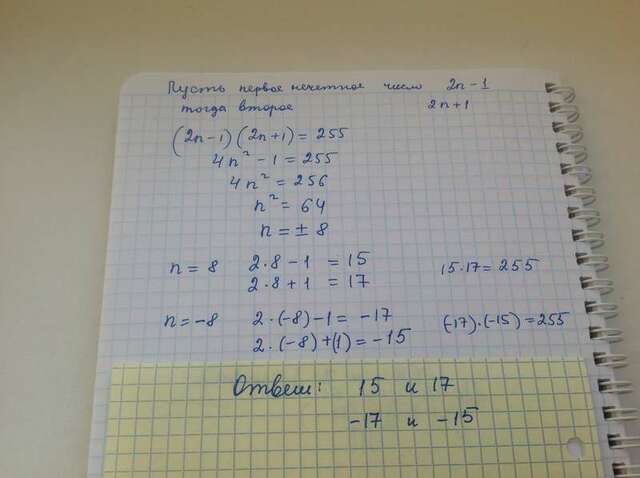 Пусть первое нечетное число 2n-1
тогда второе 2n+1
(2n-1)(2n+1)=255
4n²-1=255
4n²=256
n²=64
n=±8
n=8 2·8-1=15
2·8+1=17 15·17=255
n=-8 2·(-8)-1=-17 (-17)·(-15)=255
2·(-8)+(1)=-15
Ответ: 15 и 17
-17 и -15